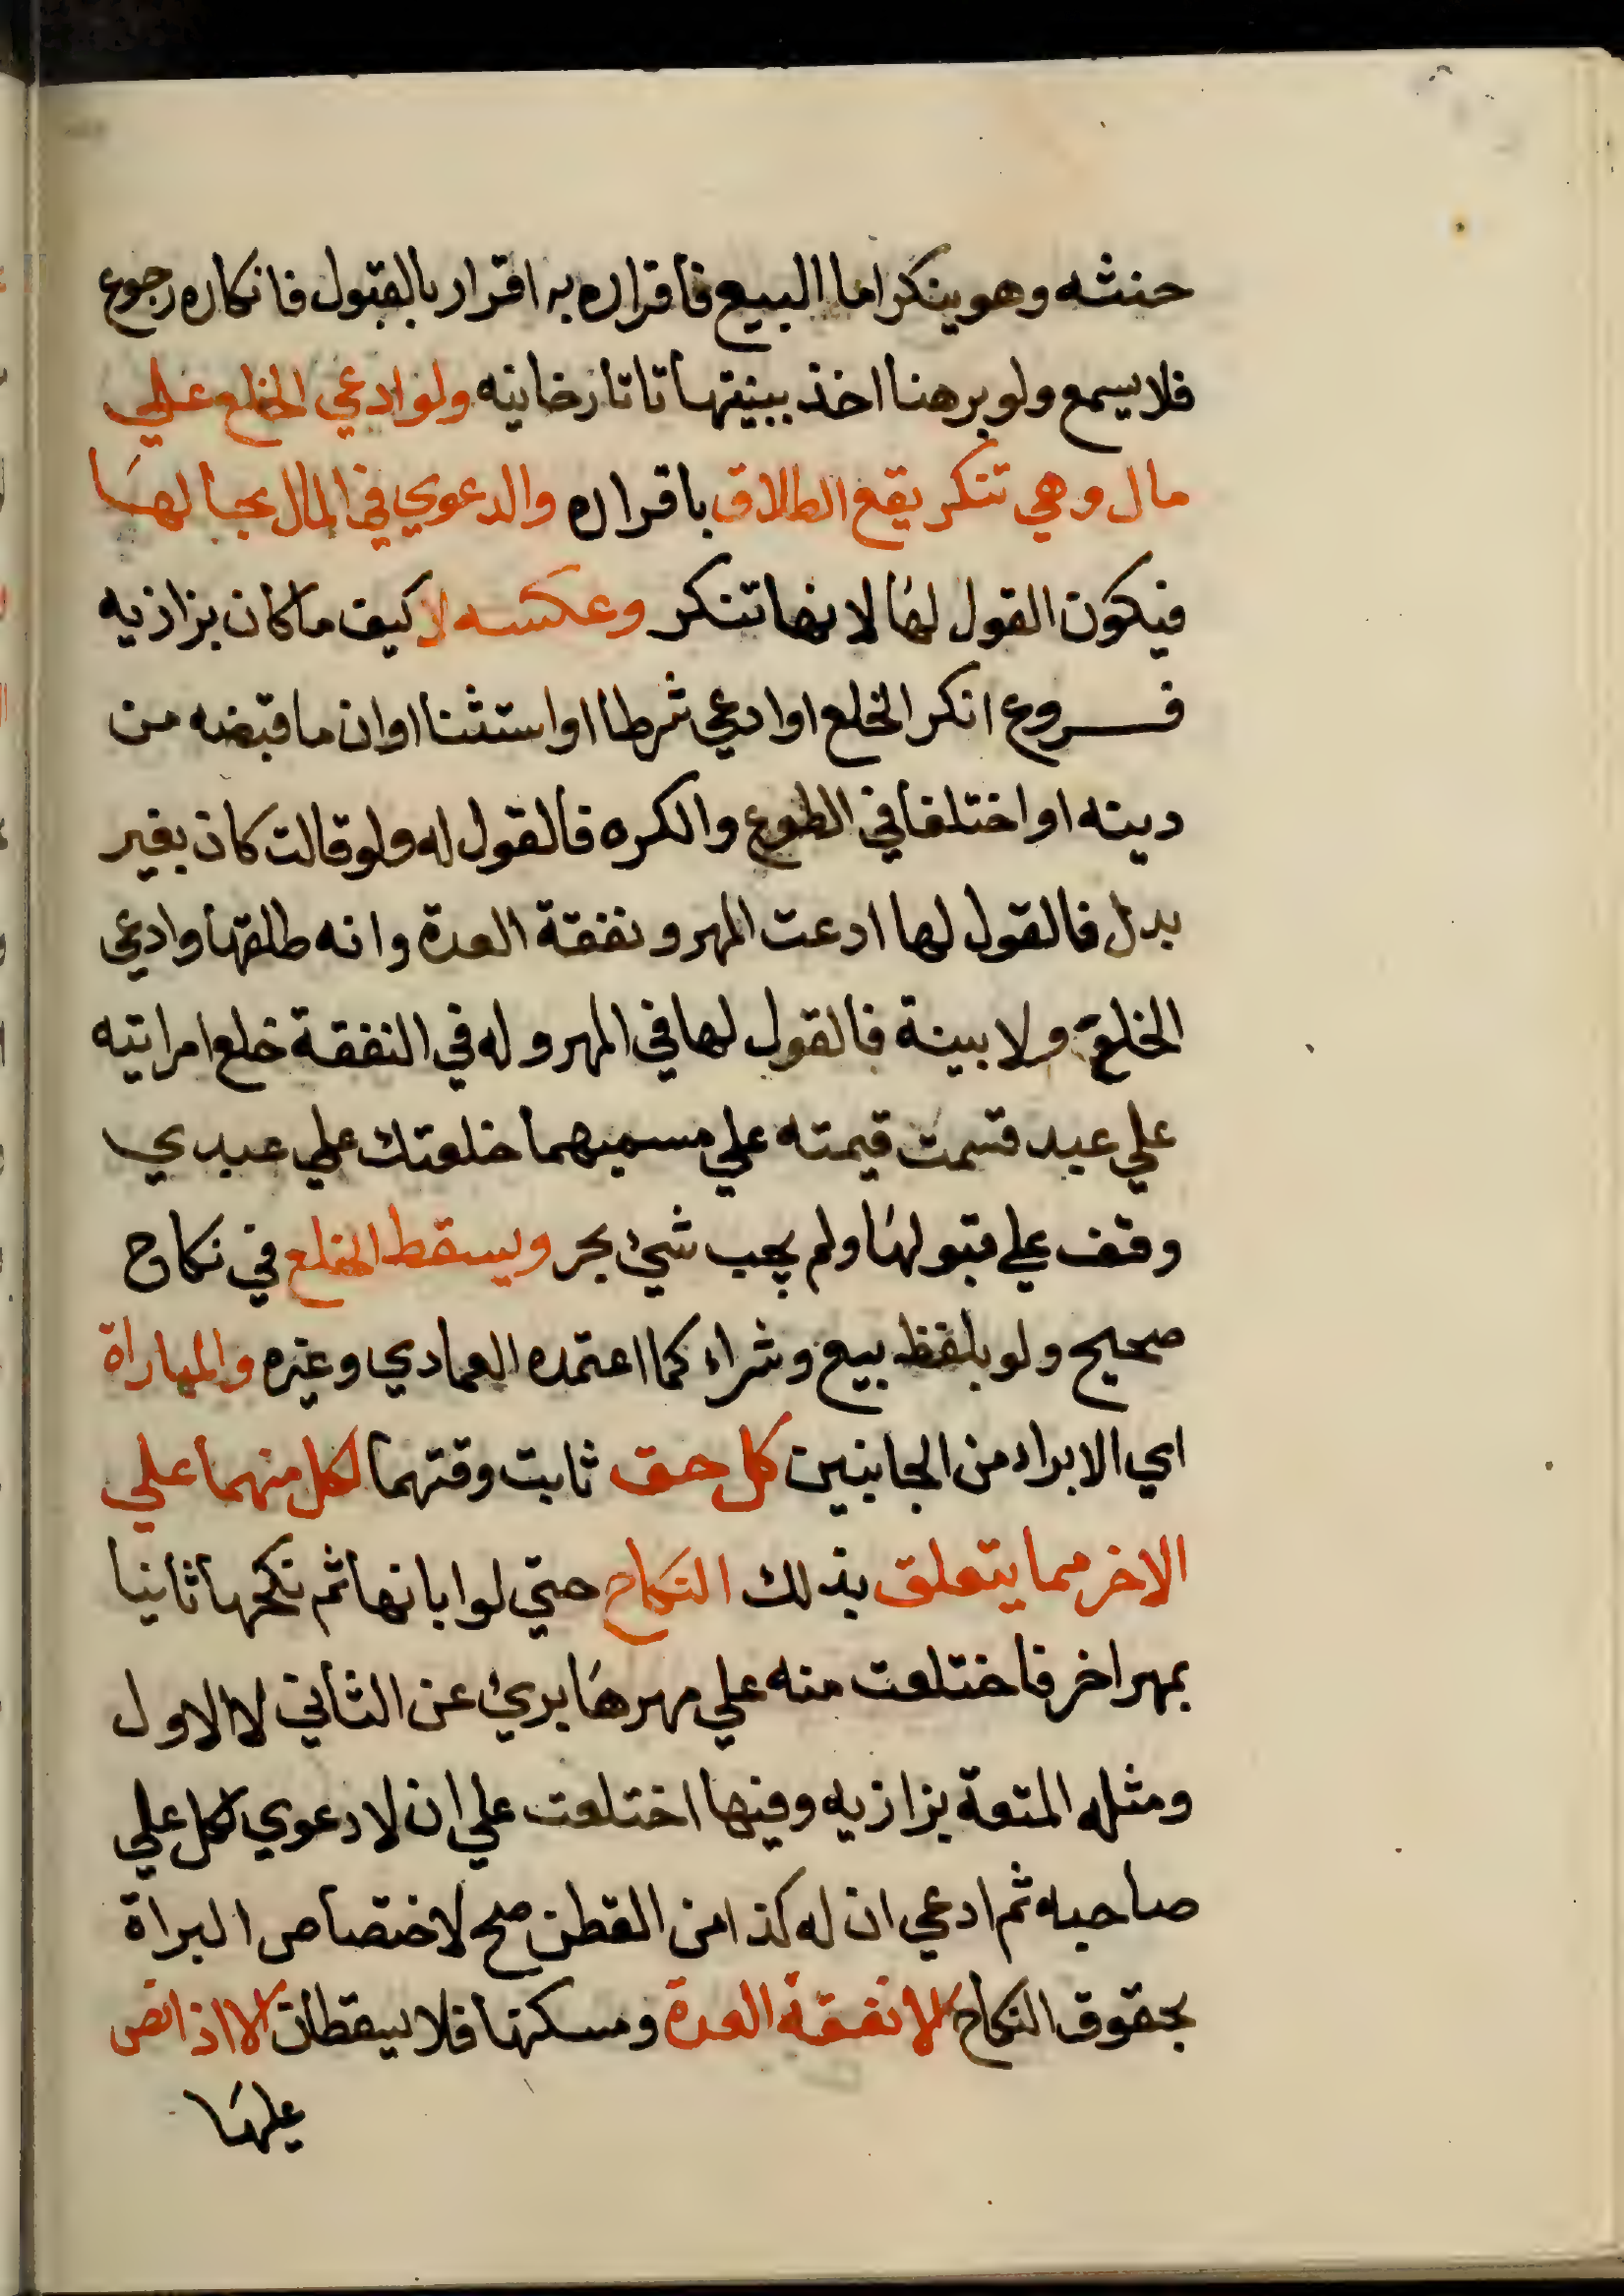 حنثه وهو ينكر اما البيع فاقراره به اقرار بالقبول فانكاره رجوع
فلا يسمع ولو برهنا اخذ ببينتها تاتارخانيه ولو ادعي الخلع علي
مال وهي تنكر يقع الطلاق باقراره والدعوي في المال بحالها
فيكون القول لها لانها تنكر وعكسه لا كيف ما كان بزازيه
فروع انكر الخلع او ادعي شرطا او استثنا او ان ما قبضه من
دينه او اختلفا في الطوع والكره فالقول له ولو قالت كان بغير
بدل فالقول لها ادعت المهر ونفقة العدة وانه طلقها وادعي
الخلع ولا بينة فالقول لها في المهر وله في النفقة خلع امراتيه
علي عبد قسمت قيمته علي مسميهما خلعتك علي عبدي
وقف علي قبولها ولم يجب شئ بحر ويسقط الخلع في نكاح
صحيح ولو بلفظ بيع وشراء كما اعتمده العمادي وغيره والمباراة
اي الابراء من الجانبين كل حق ثابت وقتهما لكل منهما علي
الاخر مما يتعلق بذلك النكاح حتي لو ابانها ثم نكحها ثانيا
بمهر اخر فاختلعت منه علي مهرها برئ عن الثاني لا الاول
ومثله المتعة بزازيه وفيها اختلعت علي ان لا دعوي لكل علي
صاحبه ثم ادعي ان له كذا من القطن صح لاختصاص البراة
بحقوق النكاح الا نفقة العدة ومسكنها فلا يسقطان الا اذا نص
عليها